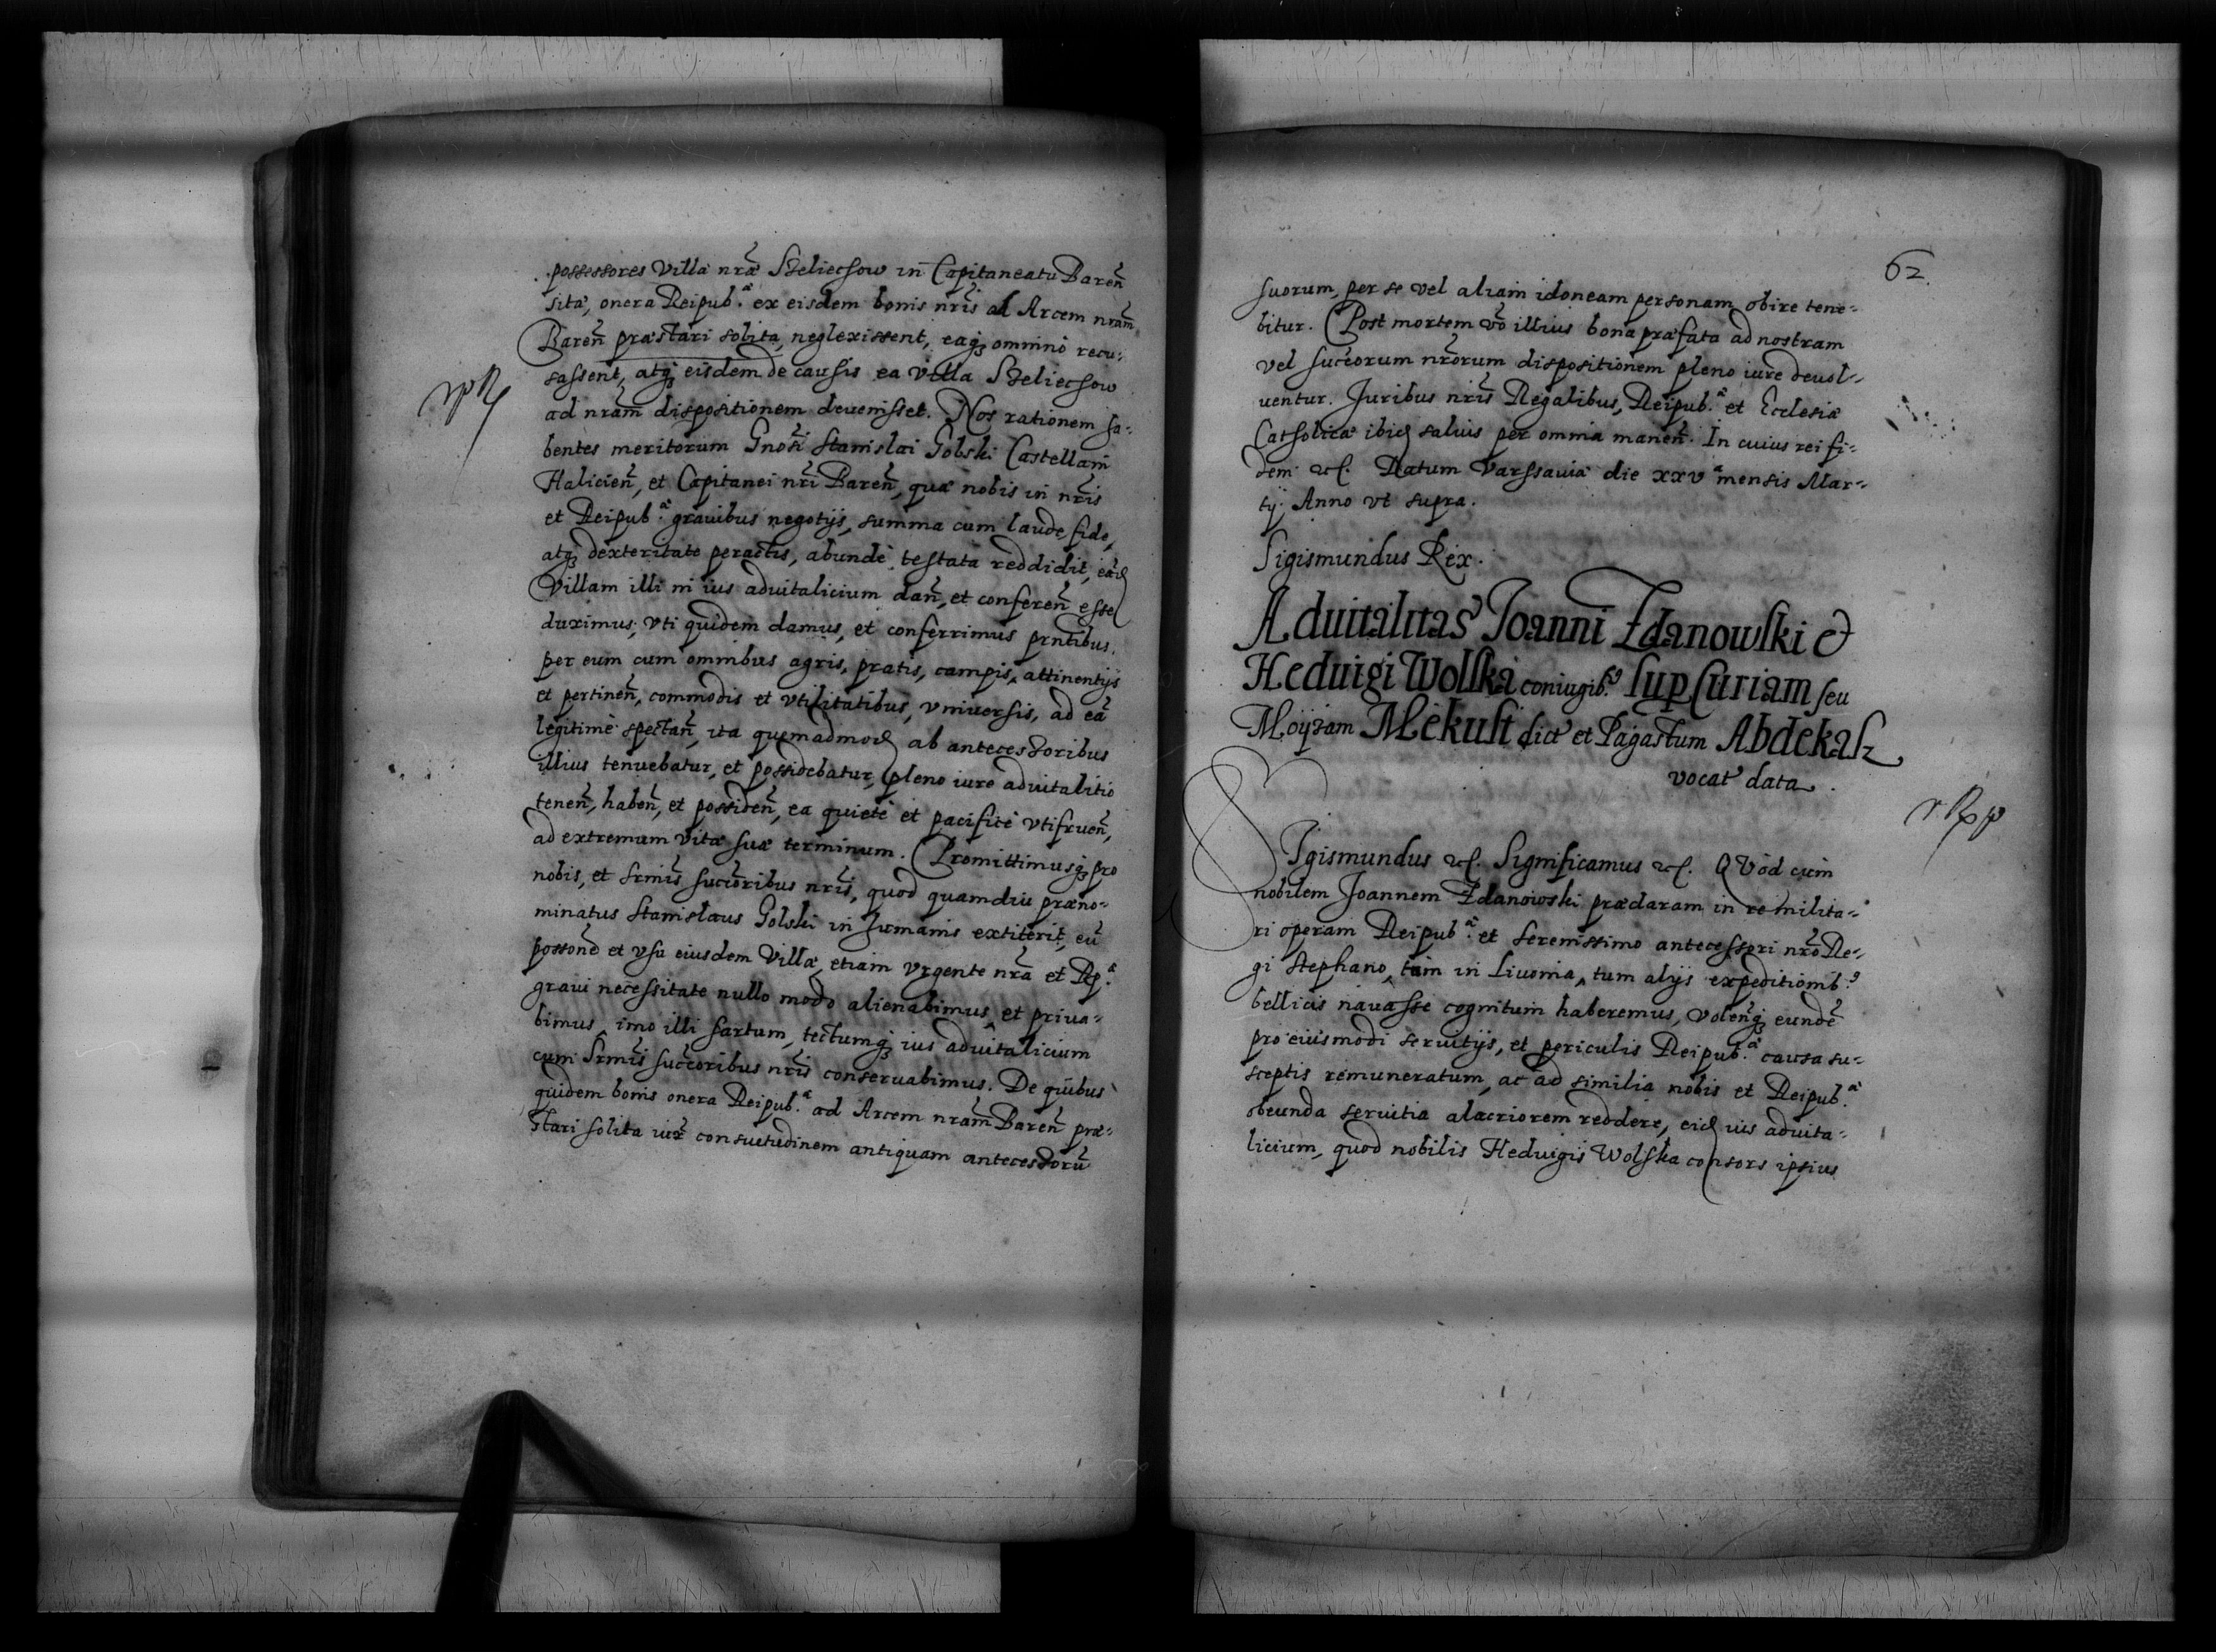 possessores Villæ nræ Szeliechow in Capitaneatu Baren̄
sitæ, onera Reipub.æ ex eisdem bonis nris̄ ad Arcem nram̄
Baren̄ præstari solita, neglexissent, eaq; omnino recu-
sassent, atq; eisdem de causis ea villa Szeliechow
ad nram̄ dispositionem devenisset. Nos rationem ha-
bentes meritorum Gnosi Stanislai Golski Castellani
Halicien̄, et Capitanei nri Baren̄, quæ nobis in nris̄
et Reipub.æ gravibus negotijs, summa cum laude fide,
atq; dexteritate peractis, abundè testata reddidit, eand
Villam illi in ius advitalicium dan̄, et conferen̄ esse
duximus; vti quidem damus, et conferrimus prntibus.
per eum cum omnibus agris, pratis, campis, attinentijs
et pertinen̄, commodis et vtilitatibus, vniversis, ad eā
legitimè spectan̄, ita quemadmod ab antecessoribus
illius tenuebatur, et possidebatur, pleno iure advitalitio
tenen̄, haben̄, et possiden̄, ea quietè et pacificè vtifruen̄,
ad extremum vitæ suæ terminum. Promittimusq; pro
nobis, et Srmis̄ succoribus nris̄, quod quamdiu præno-
minatus Stanislaus Golski in humanis extiterit, eū
possone et vsu eiusdem Villæ, etiam vrgente nra et Rp.æ
gravi necessitate nullo modo alienabimus, et priva-
bimus, imo illi sartum, tectumq; ius advitalicium
cum Srmis̄ succoribus nris̄ conservabimus. De quibus
quidem bonis onera Reipub.æ ad Arcem nram̄ Baren̄ præ-
stari solita iux̄ consuetudinem antiquam antecessorū
62.
suorum, per se vel aliam idoneam personam obire tene-
bitur. Post mortem vō illius bona præfata ad nostram
vel succorum nrorum dispositionem pleno iure devol-
ventur. Juribus nris̄ Regalibus, Reipub.æ et Ecclesiæ
Catholicæ ibid salvis per omnia manen̄. In cuius rei fi-
dem etc. Datum Varssaviæ die xxva mensis Mar-
tij Anno vt supra.
Sigismundus Rex.
Advitalitas Joanni Zdanowski et
Hedvigi Wolska coniugib.9 sup Curiam seu
Moyzam Mekust dict et Pagastum Abdekalz
vocat data.
SIgismundus etc. Significamus etc. QVod cum
nobilem Joannem Zdanowski præclaram in re milita-
ri operam Reipub.æ et Serenissimo antecessori nro Re-
gi Stephano, tum in Livonia, tum alijs expeditionib.9
bellicis navasse cognitum haberemus, volenq; eundē
pro eiusmodi servitijs, et periculis Reipub.æ causa su-
sceptis remuneratum, ac ad similia nobis et Reipub.æ
obeunda servitia alacriorem reddere, eid ius advita-
licium, quod nobilis Hedvigis Wolska consors ipsius